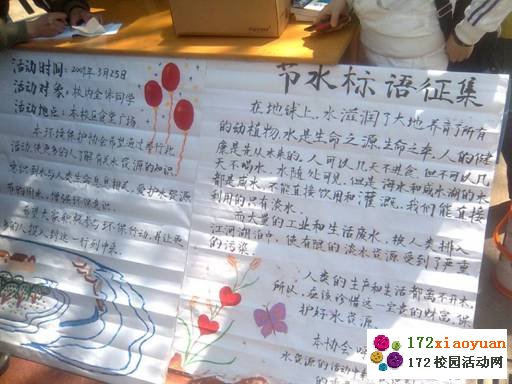 活动时间：2009年3月25日
活动对象：校内全体同学
活动地点：本校区食堂广场
本环境保护协会希望通过举行此
活动使更多的人了解有关水资源的知识
识到水与人类生命息息相关，爱护水资源
节约用水，增强环保意识。
希望大家积极参与环保行动，并让更
多的人投入到这一行列中来。
节水标语征集
在地球上，水滋润了大地养育了所有
的动植物，水是生命之源，生命之本，人的健
康是先从水来的，人可以几天不进食，但不可以几
天不喝水，水随处可见，但是海水和咸水湖的水
都是咸水，不能直接饮用和灌溉，我们能直接
利用的只有淡水。
而大量的工业和生活废水，被人类排入
江河湖泊中，使有限的淡水资源受到了严重
的污染。
人类的生产和生活都离不开水，
所以，应该珍惜这一宝贵的财富，保
护好水资源。
本协会
水资源的活动中
172xiaoyuan
172校园活动网